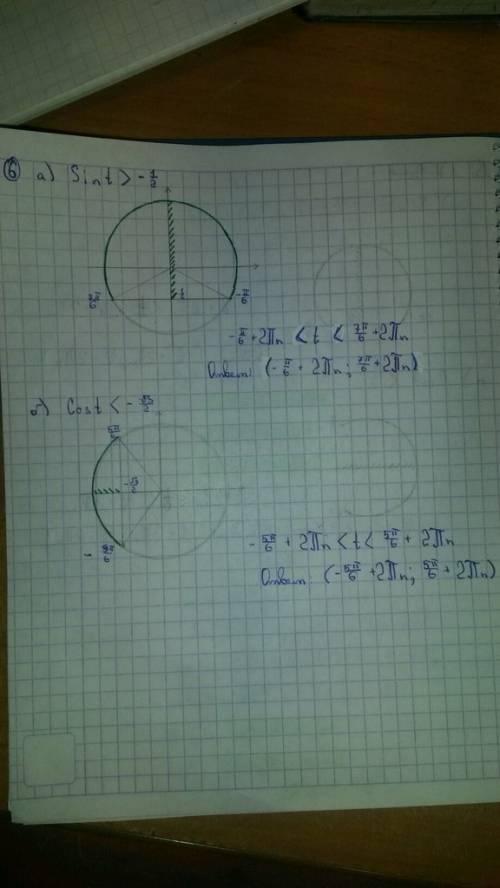 ⑥ а) Sin t > -1/2
7π/6 -1/2 -π/6
-π/6 + 2πn < t < 7π/6 + 2πn
Ответ: (-π/6 + 2πn; 7π/6 + 2πn)
б) Cos t < -√3/2
5π/6
-√3/2
- 5π/6
-5π/6 + 2πn < t < 5π/6 + 2πn
Ответ: (-5π/6 + 2πn; 5π/6 + 2πn)